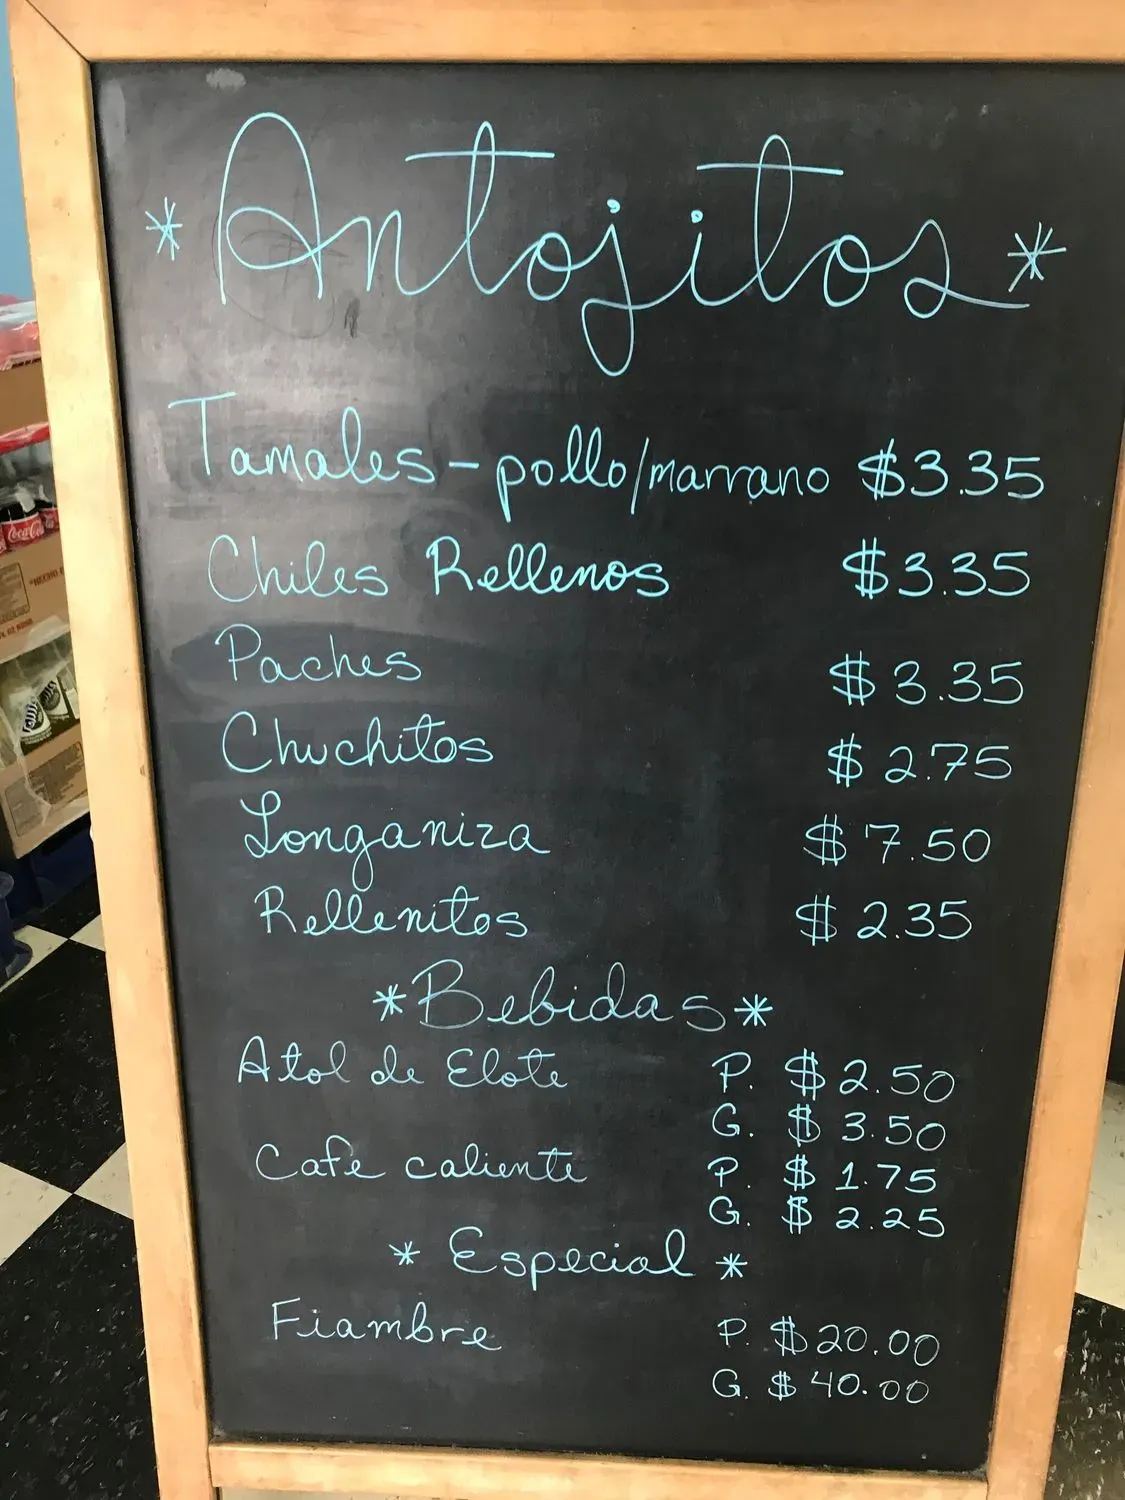 * Antojitos *
Tamales - pollo/marrano $3.35
Chiles Rellenos $3.35
Paches $3.35
Chuchitos $2.75
Longaniza $7.50
Rellenitos $2.35
* Bebidas *
Atol de Elote P. $2.50
G. $3.50
Cafe caliente P. $1.75
G. $2.25
* Especial *
Fiambre P. $20.00
G. $40.00
Coca-Cola